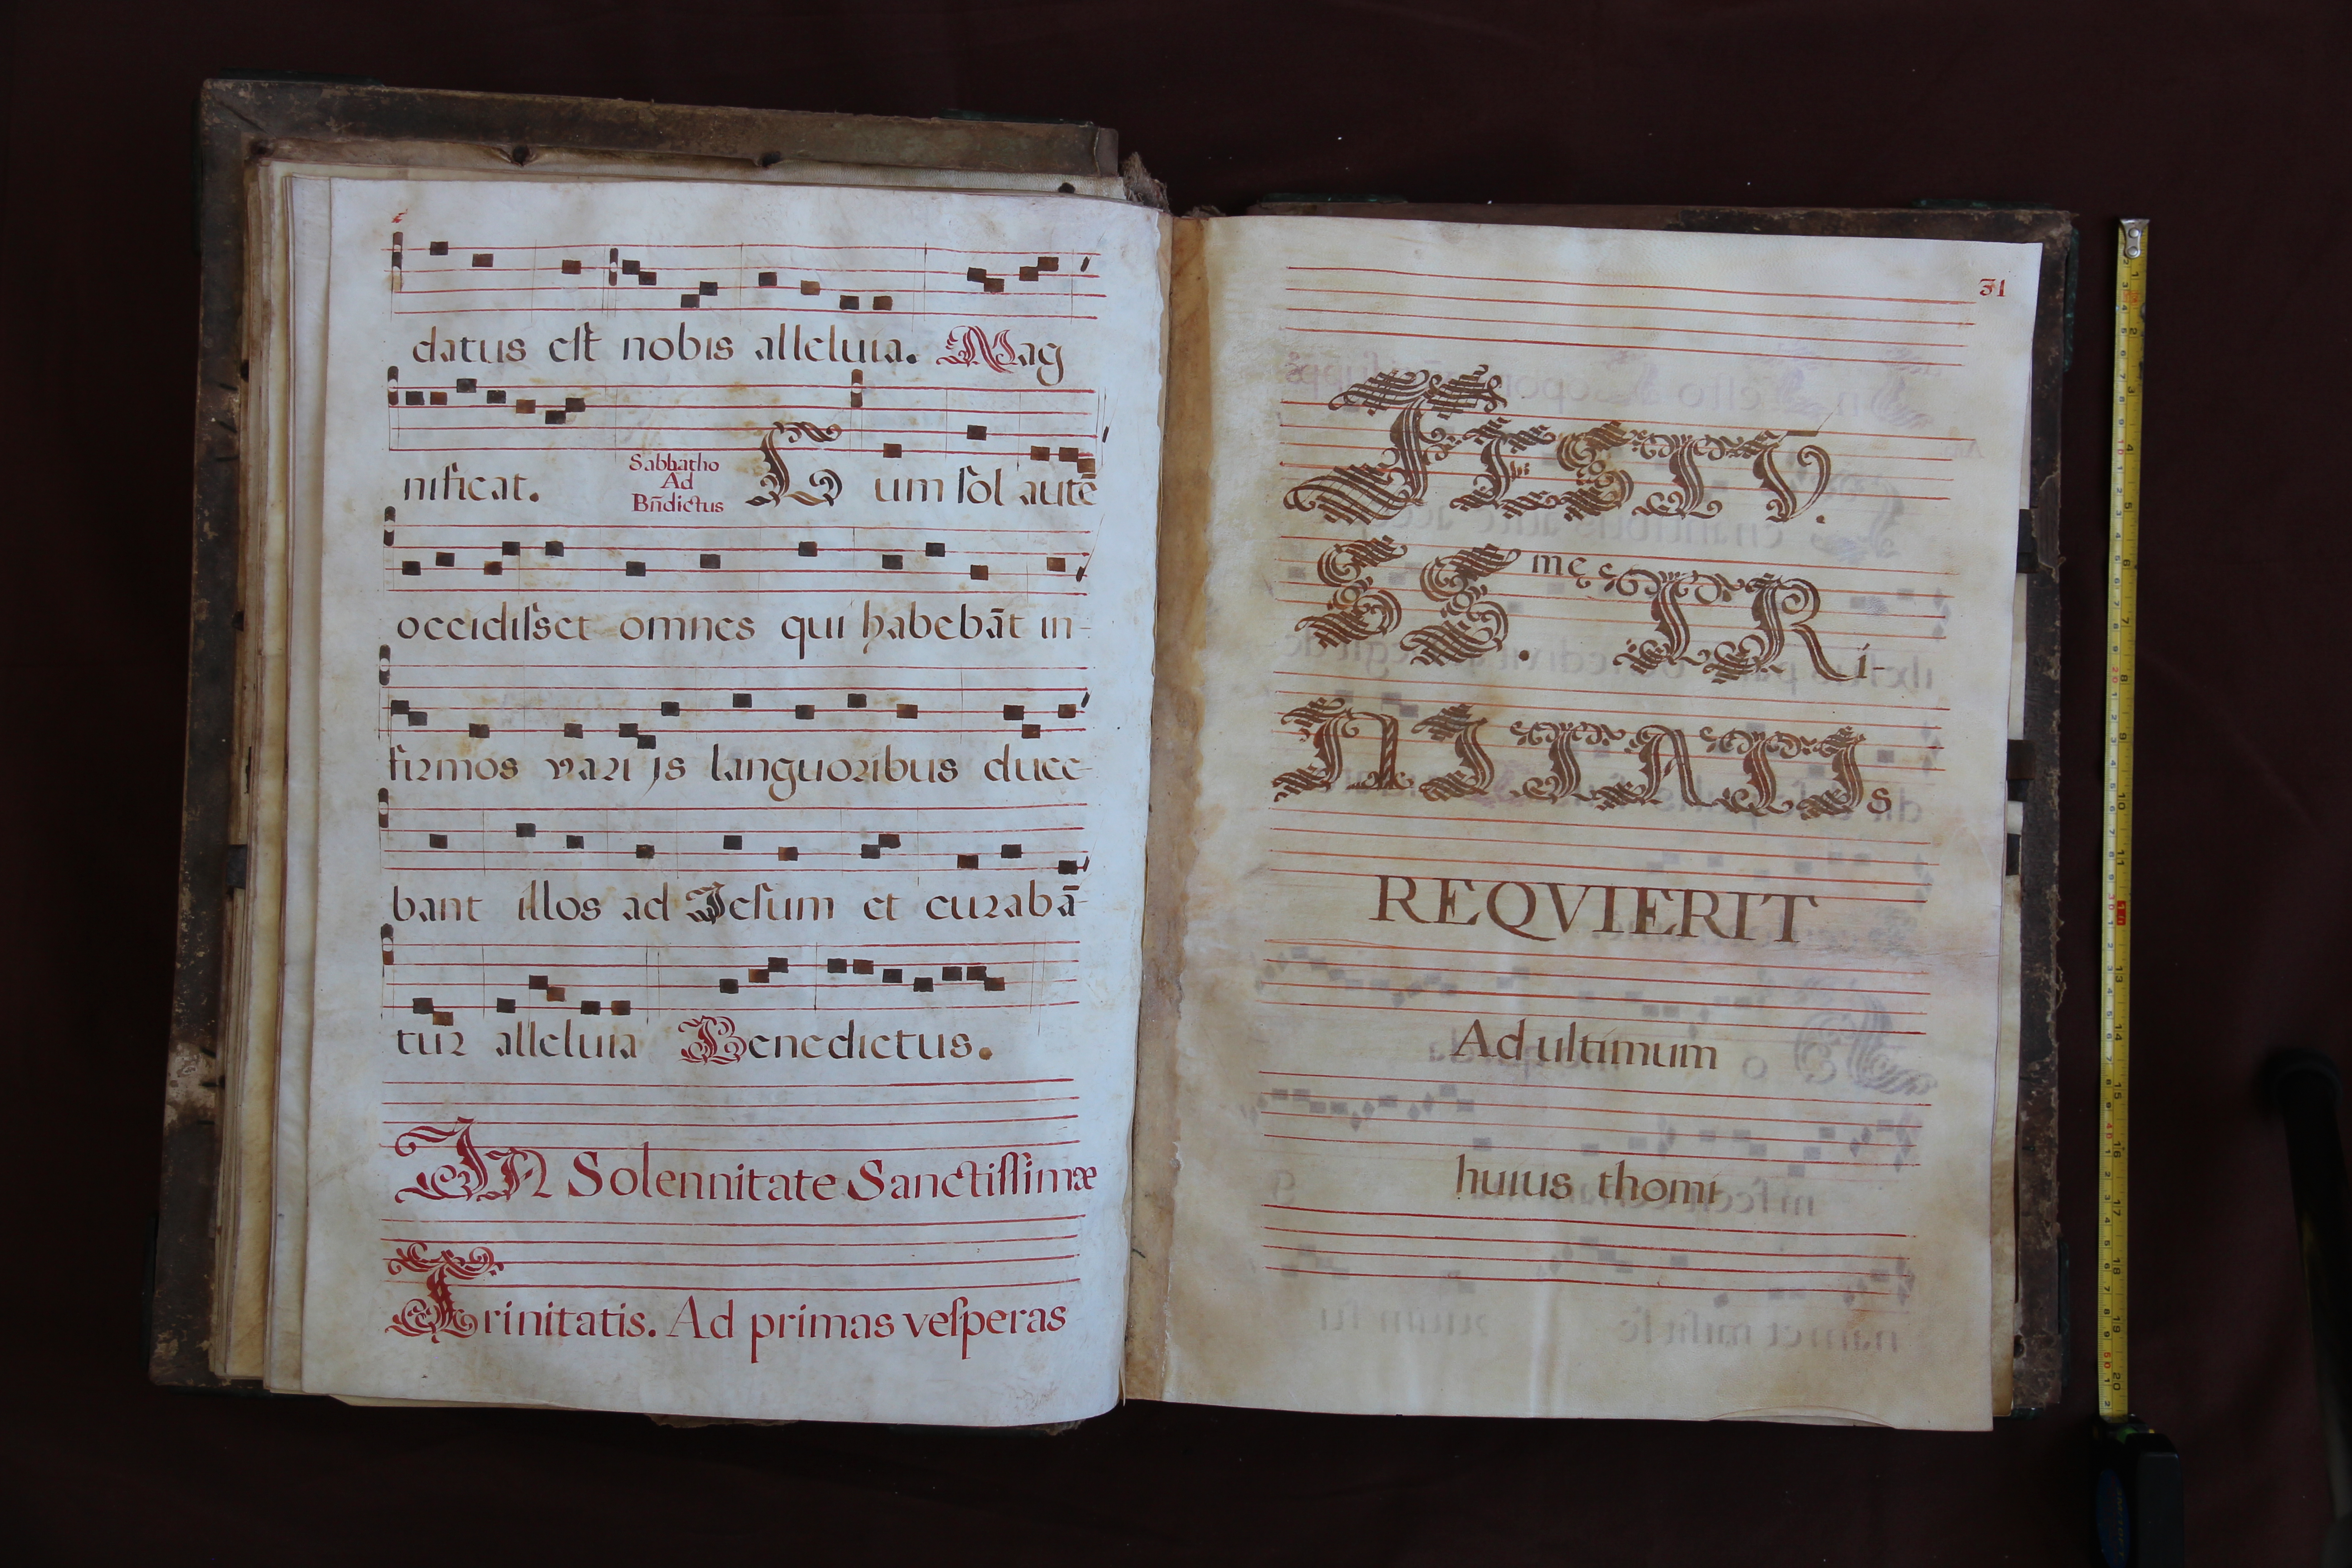 datus eſt nobis alleluia. Mag
nificat. Sabbatho
Ad
Bn̄dictus
Cum ſol autē
occidiſset omnes qui habebāt in-
firmos varijs languoribus duce-
bant illos ad Jeſum et curabā-
tur alleluia Benedictus.
IN Solennitate Sanctiſſimæ
Trinitatis. Ad primas veſperas
31
FESTŪ.
SS. mę TRi-
NITATIs
REQVIERIT
Ad ultimum
huius thomi